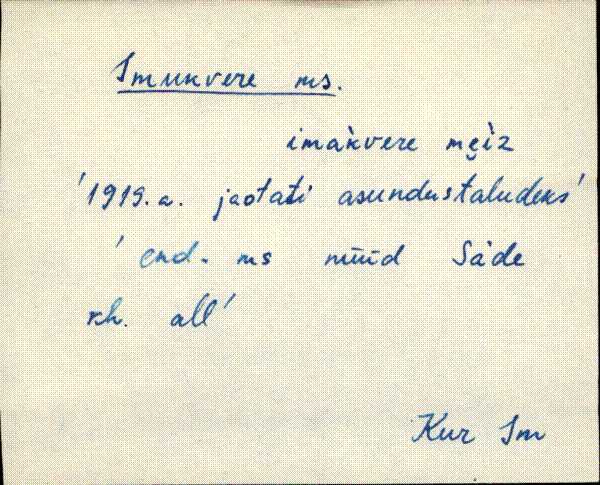 Imukvere ms.
imàkvere mẹìz
'1919. a. jaotati asundustaludeks'
'end. ms nüüd Säde
kh. all'
Kur Im